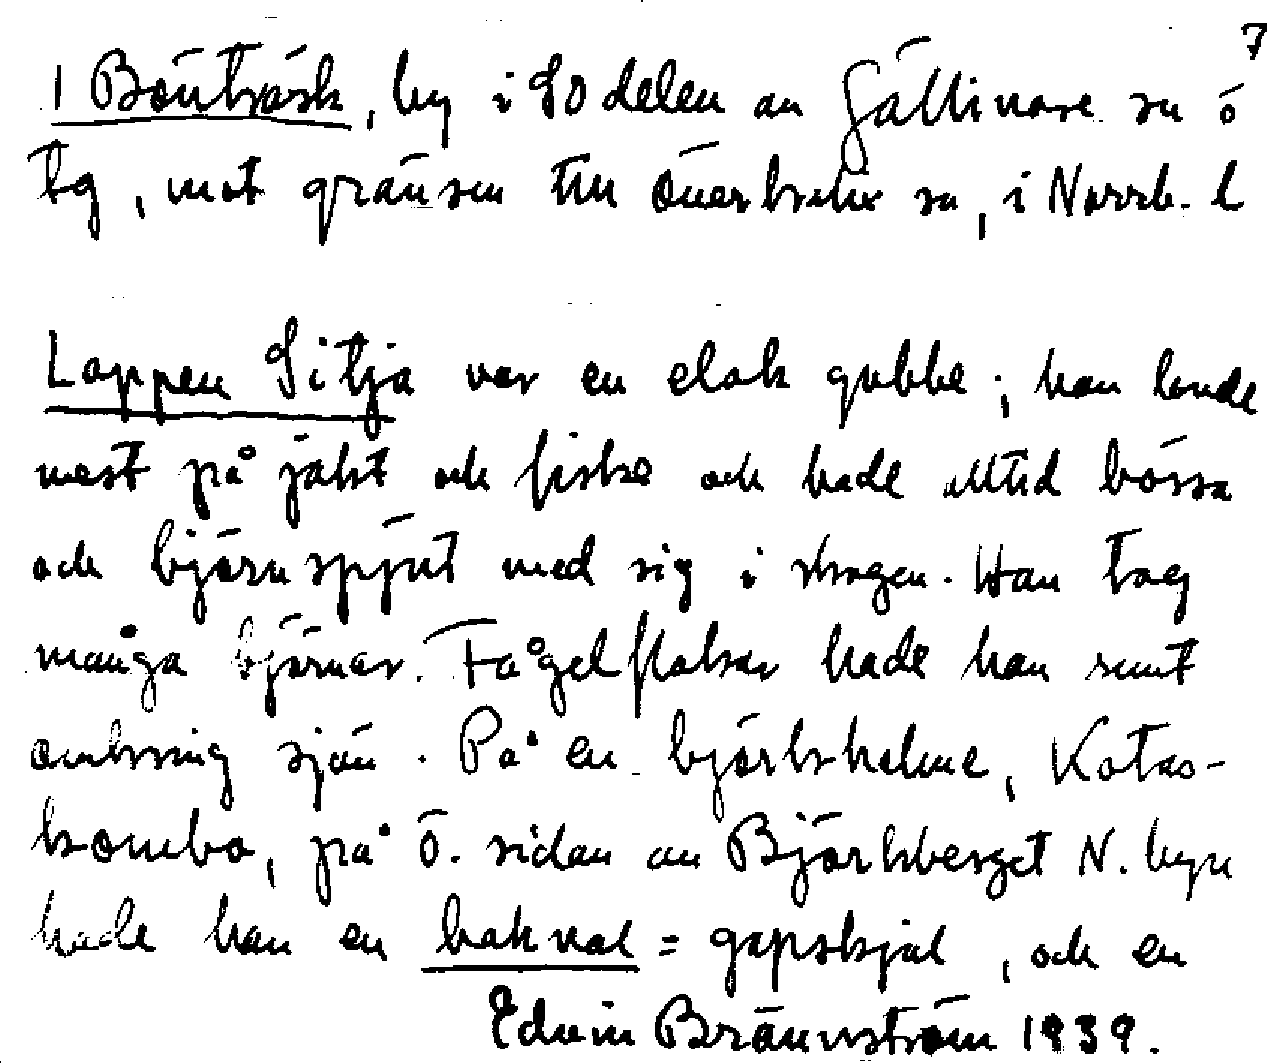 7
I Böuträsk, by i SO delen av Gällivare sn o
tg, mot gränsen till Överkalix sn, i Norrb. l
Lappen Sitja var en elak gubbe; han levde
mest på jakt och fiske och hade alltid bössa
och björnspjut med sig i skogen. Han tog
många björnar. Fågelflakar hade han runt
omkring sjön. På en björkholme, Kotas-
kombo, på ö. sidan av Björkberget N. byn
hade han en bakval = gapskjul, och en
Edvin Brännström 1939.